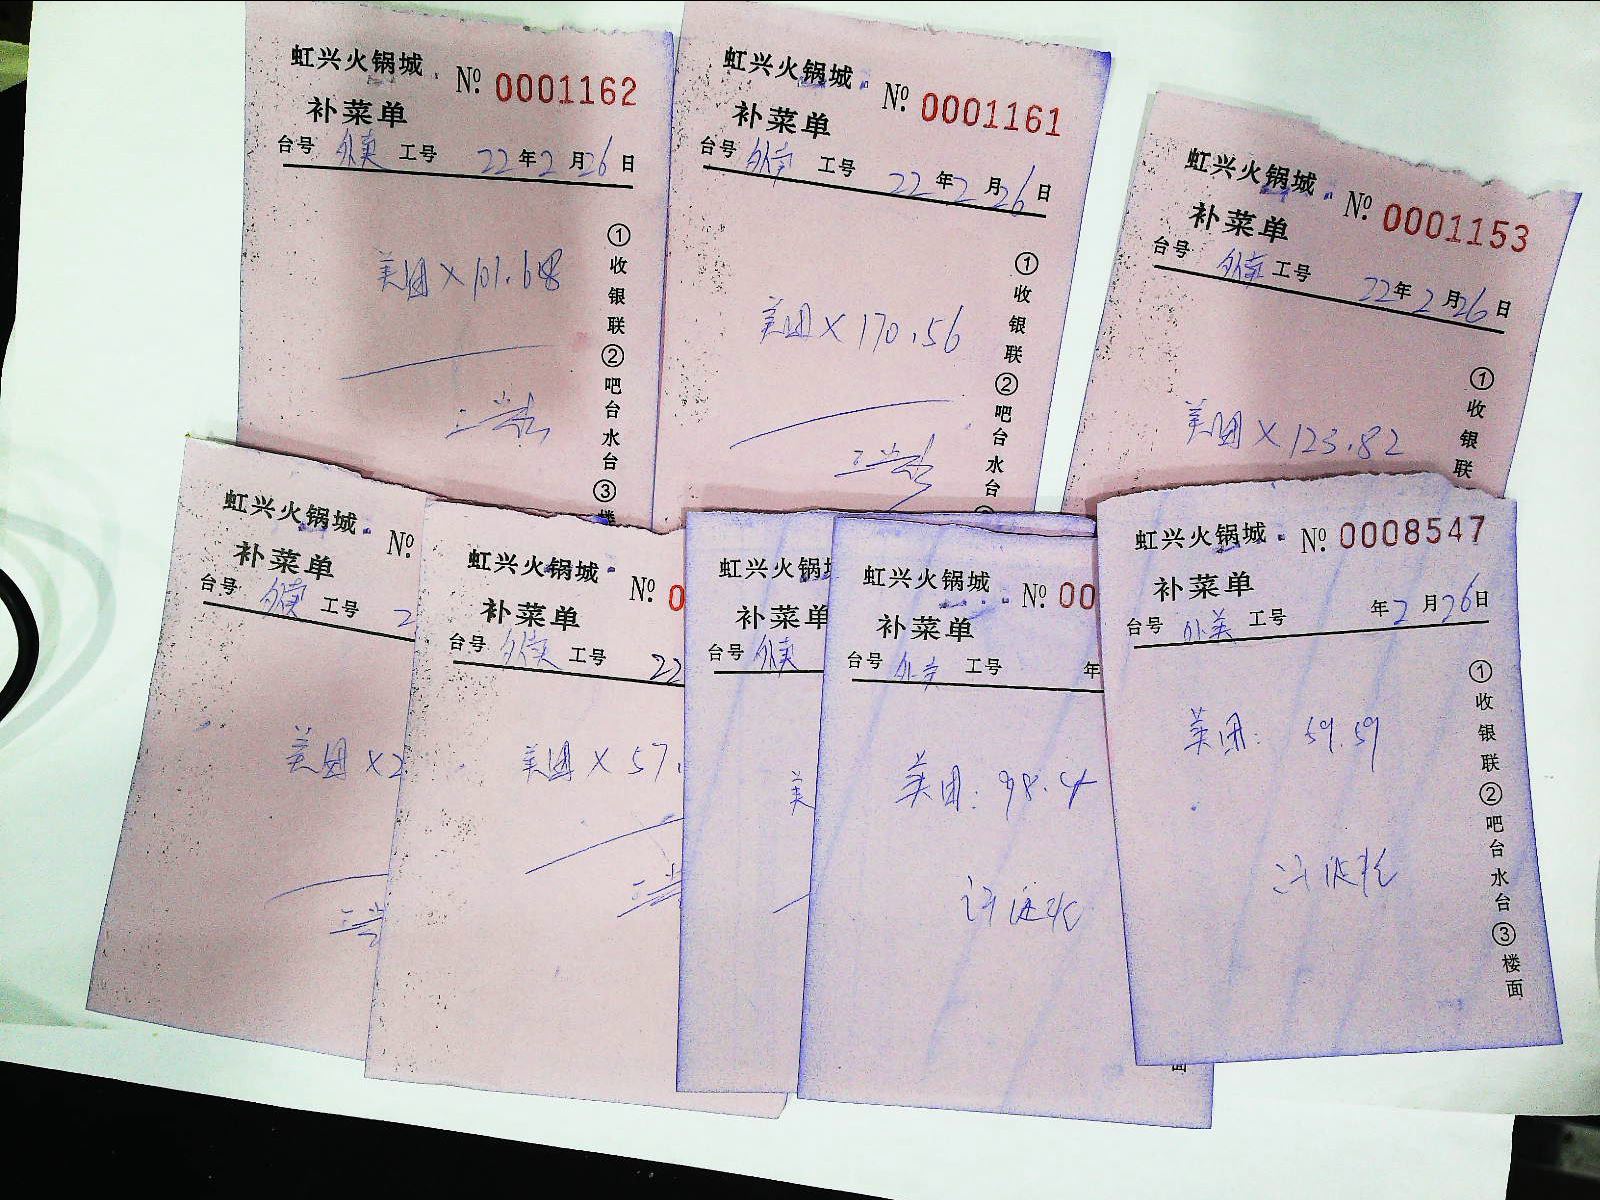 虹兴火锅城 № 0001162
补菜单
台号 外卖 工号 22年2月26日
美团×101.68
①收银联②吧台水台③楼
虹兴火锅城 № 0001161
补菜单
台号 外卖 工号 22年2月26日
美团×170.56
①收银联②吧台水台
虹兴火锅城 № 0001153
补菜单
台号 外卖 工号 22年2月26日
美团×123.82
①收银联
虹兴火锅城 №
补菜单
台号 外卖 工号 2
美团×2
虹兴火锅城 № 0
补菜单
台号 外卖 工号 22
美团×57.
虹兴火锅
补菜单
台号 外卖
美
虹兴火锅城 № 00
补菜单
台号 外卖 工号 年
美团:98.4
面
虹兴火锅城 № 0008547
补菜单
台号 外卖 工号 年2月26日
美团:59.59
①收银联②吧台水台③楼面